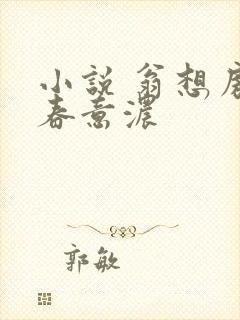 小說 翁想
春意濃
郭敏